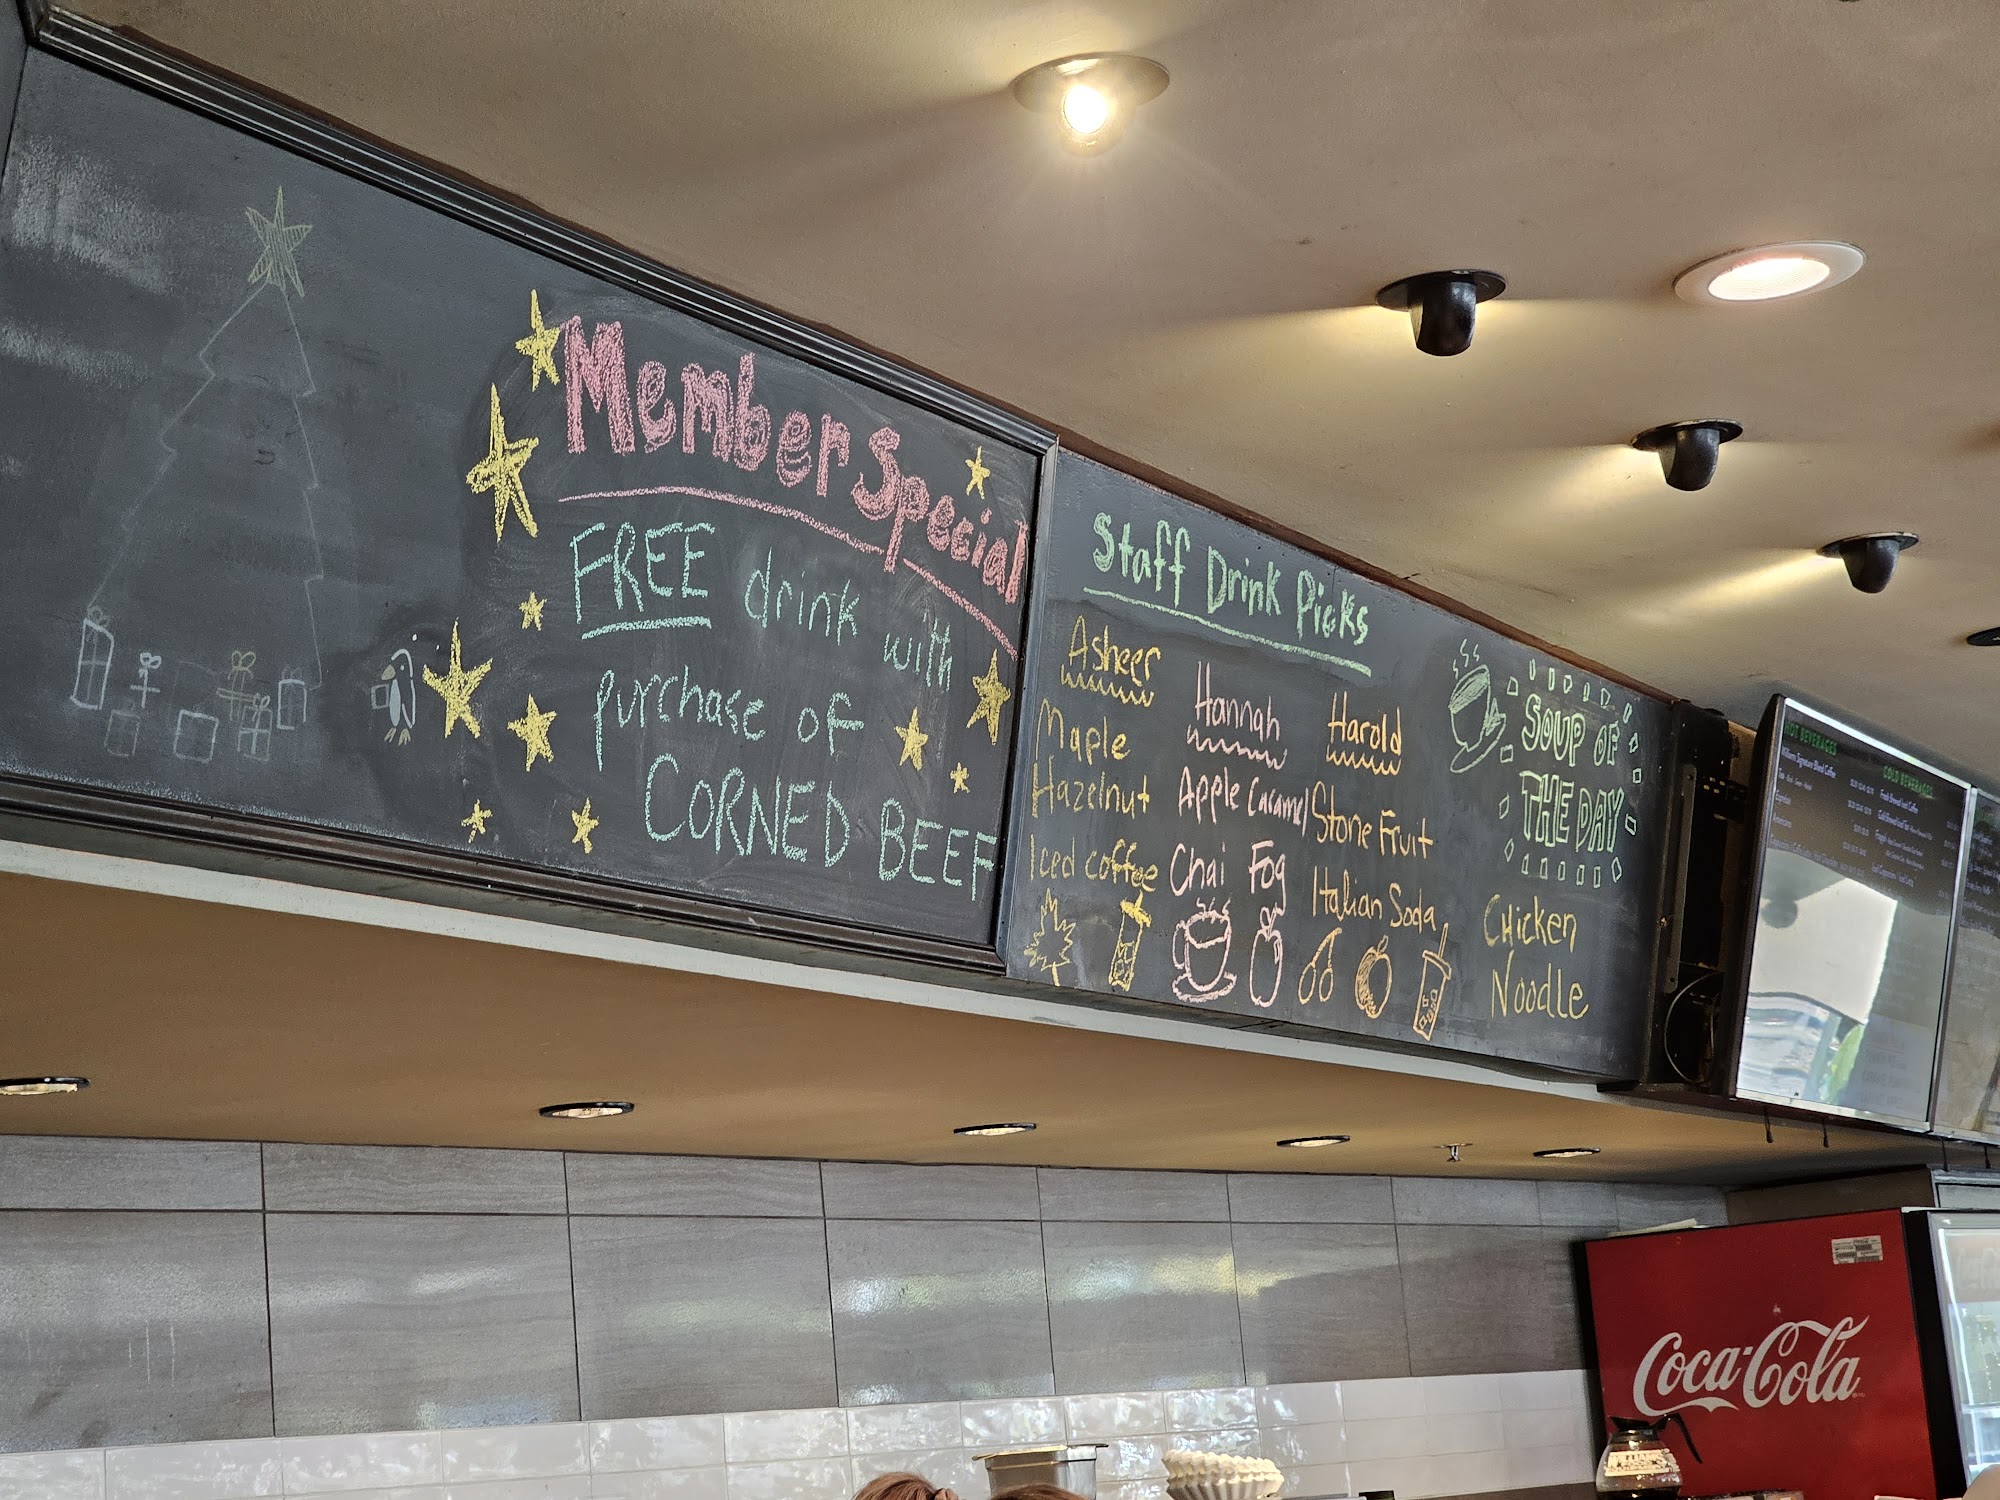 Member Special
FREE drink with
purchase of
CORNED BEEF
Staff Drink Picks
Asheer
Maple
Hazelnut
Iced coffee
Hannah
Apple Caramel
Chai Fog
Harold
Stone Fruit
Italian Soda
SOUP OF
THE DAY
Chicken
Noodle
HOT BEVERAGES
Williams Signature Blend Coffee
COLD BEVERAGES
Coca-Cola